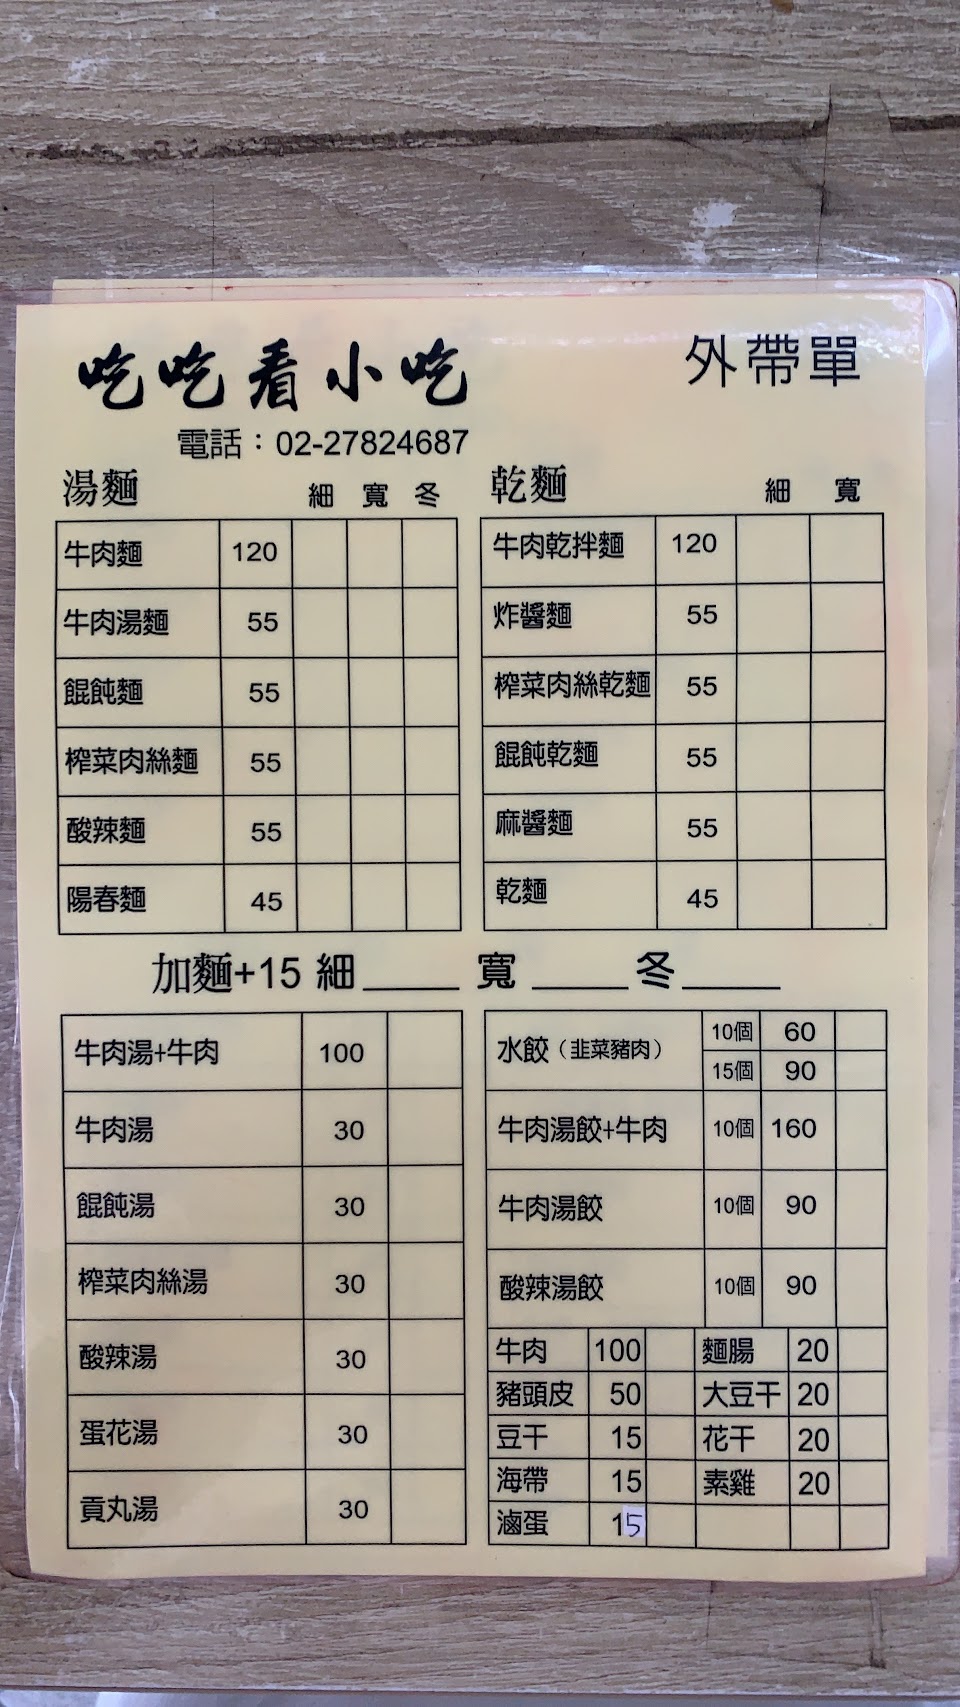 吃吃看小吃
外帶單
電話：02-27824687
湯麵 細 寬 冬
牛肉麵 120
牛肉湯麵 55
餛飩麵 55
榨菜肉絲麵 55
酸辣麵 55
陽春麵 45
乾麵 細 寬
牛肉乾拌麵 120
炸醬麵 55
榨菜肉絲乾麵 55
餛飩乾麵 55
麻醬麵 55
乾麵 45
加麵+15 細_____ 寬_____ 冬_____
牛肉湯+牛肉 100
牛肉湯 30
餛飩湯 30
榨菜肉絲湯 30
酸辣湯 30
蛋花湯 30
貢丸湯 30
水餃（韭菜豬肉） 10個 60
15個 90
牛肉湯餃+牛肉 10個 160
牛肉湯餃 10個 90
酸辣湯餃 10個 90
牛肉 100 麵腸 20
豬頭皮 50 大豆干 20
豆干 15 花干 20
海帶 15 素雞 20
滷蛋 15